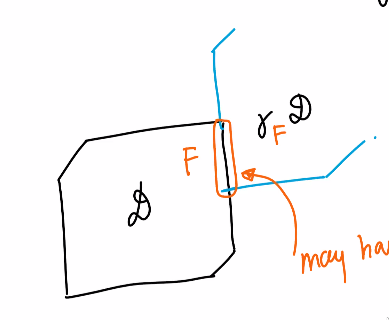 γ_F 𝒟
F
𝒟
may ha